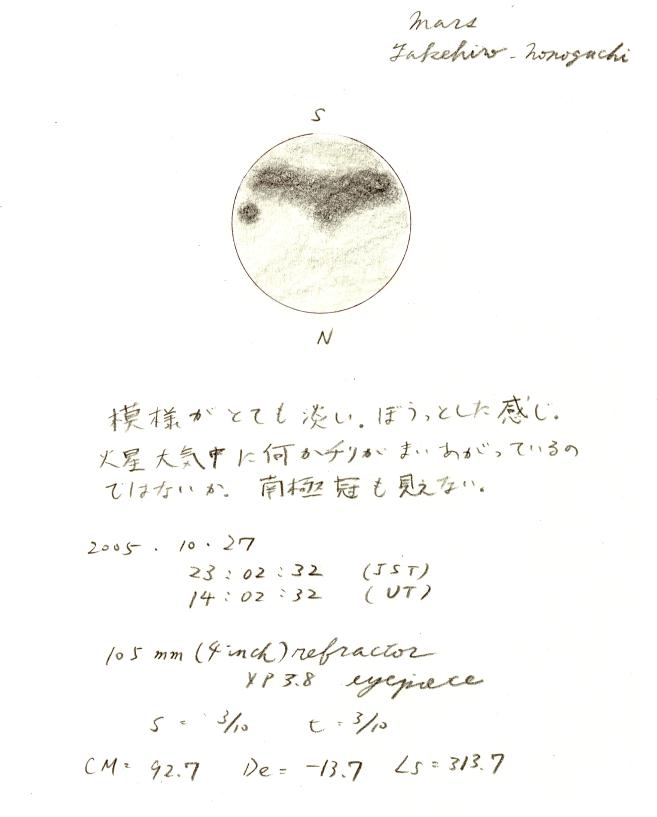 Mars
Takehiro - Nonoguchi
S
N
模様がとても淡い。ぼうっとした感じ。
火星大気中に何かチリがまいあがっているの
ではないか。南極冠も見えない。
2005 . 10 . 27
23 : 02 : 32 (JST)
14 : 02 : 32 (UT)
105 mm (4 inch) refractor
XP 3.8 eyepiece
S = 3/10 t = 3/10
CM = 92.7 De = -13.7 Ls = 313.7